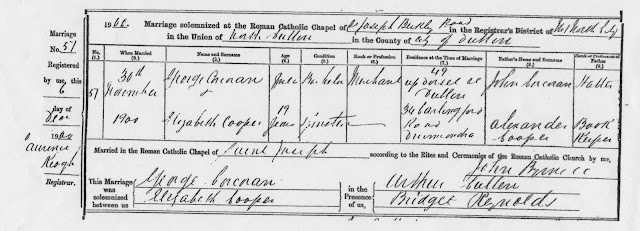 1900. Marriage solemnized at the Roman Catholic Chapel of St Joseph Berkeley Road in the Registrar's District of No 3 North City
in the Union of North Dublin in the County of City of Dublin
Marriage No. 51
Registered by me, this
6
day of
Decr
1900
Laurence Keogh
Registrar.
No. (1.) When Married (2.) Name and Surname (3.) Age (4.) Condition (5.) Rank or Profession (6.) Residence at the Time of Marriage (7.) Father's Name and Surname (8.) Rank or Profession of Father (9.)
51 30th November 1900 George Corcoran Full Bachelor Merchant 49 Up Dorset St Dublin John Corcoran Hatter
&
Elizabeth Cooper 19 Years Spinster 34 Carlingford Road Drumcondra Alexander Cooper Book Keeper
Married in the Roman Catholic Chapel of Saint Joseph according to the Rites and Ceremonies of the Roman Catholic Church by me,
John Byrne CC
This Marriage was solemnized between us George Corcoran in the Presence of us, Arthur Cullen
Elizabeth Cooper Bridget Reynolds